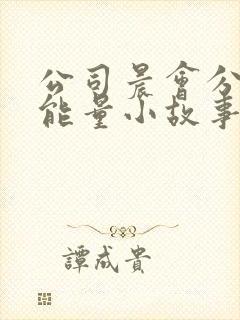 公司晨會分
能量小故事
譚成貴